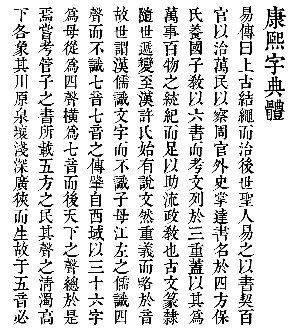 康熙字典體
易傳曰上古結繩而治後世聖人易之以書契百
官以治萬民以察周官外史掌達書名於四方保
氏養國子敎以六書而考文列於三重蓋以其爲
萬事百物之統紀而足以助流政敎也古文篆隸
隨世遞變至漢許氏始有說文然重義而略於音
故世謂漢儒識文字而不識子母江左之儒識四
聲而不識七音七音之傳肇自西域以三十六字
爲母從爲四聲橫爲七音而後天下之聲總於是
焉嘗考管子之書所載五方之民其聲之清濁高
下各象其川原泉壤淺深廣狹而生故于五音必